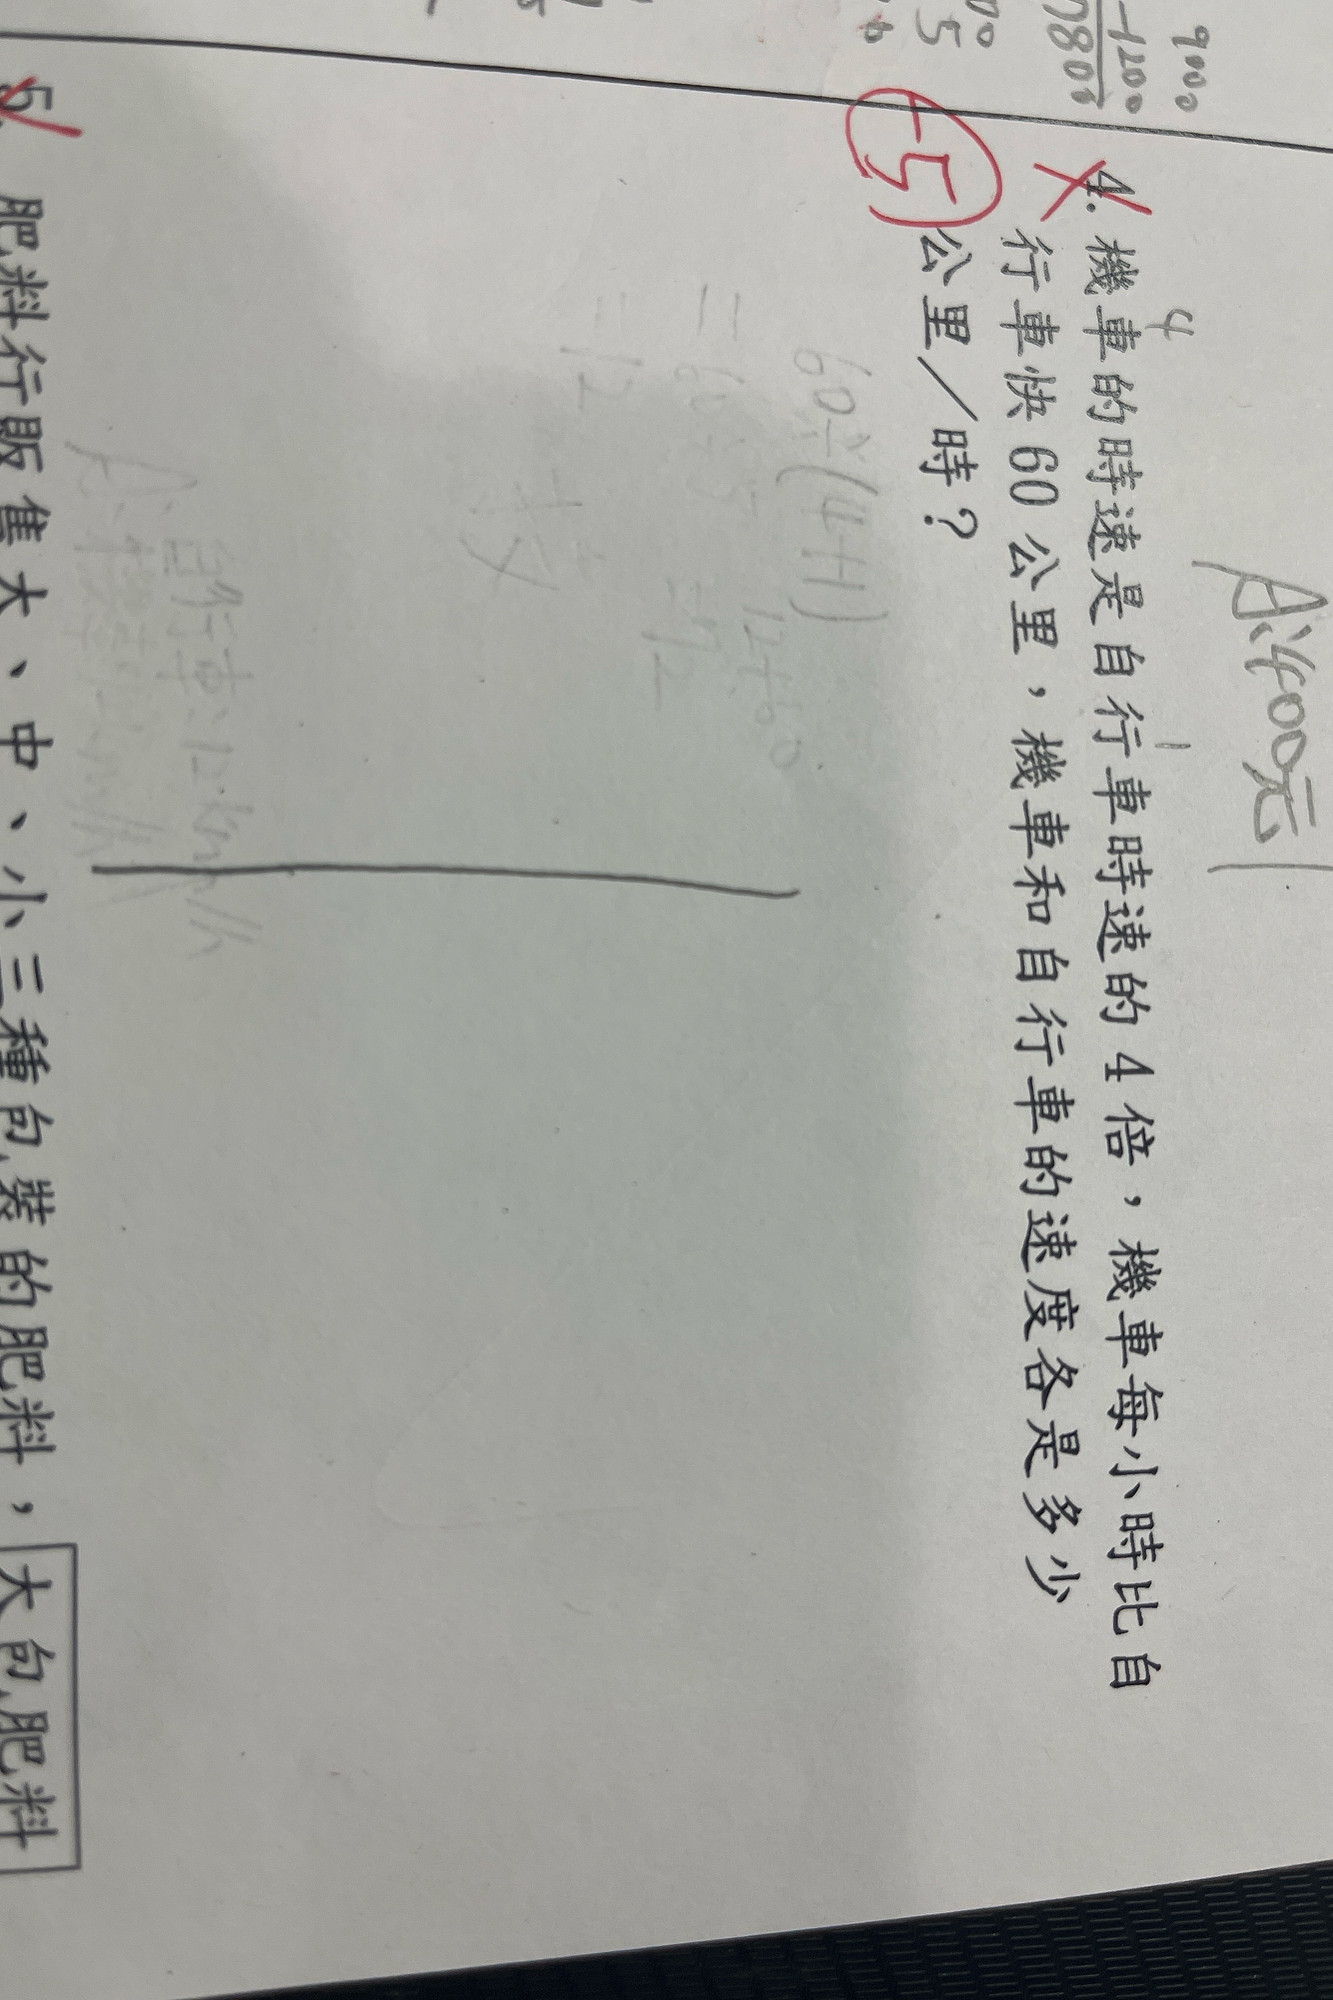 9000
-1200
7800
00
5
A:400元
4
1
4. 機車的時速是自行車時速的4倍，機車每小時比自
行車快60公里，機車和自行車的速度各是多少
公里／時？
-5
60÷(4+1)
=60÷5
=12
12+60
=72
自行車:12km/h
5. 肥料行販售大、中、小三種包裝的肥料，大包肥料